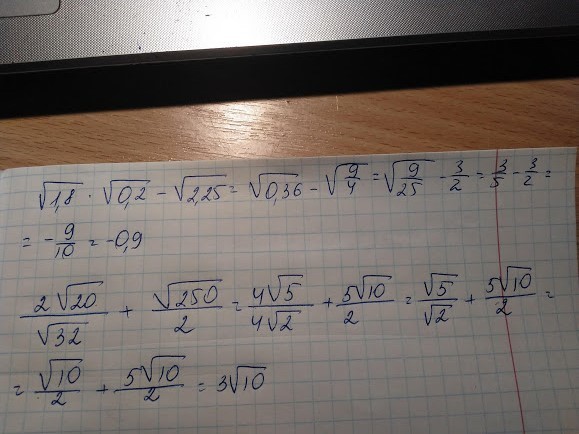 √1,8 · √0,2 − √2,25 = √0,36 − √(9/4) = √(9/25) − 3/2 = 3/5 − 3/2 =
= − 9/10 = −0,9
2√20/√32 + √250/2 = 4√5/4√2 + 5√10/2 = √5/√2 + 5√10/2 =
= √10/2 + 5√10/2 = 3√10